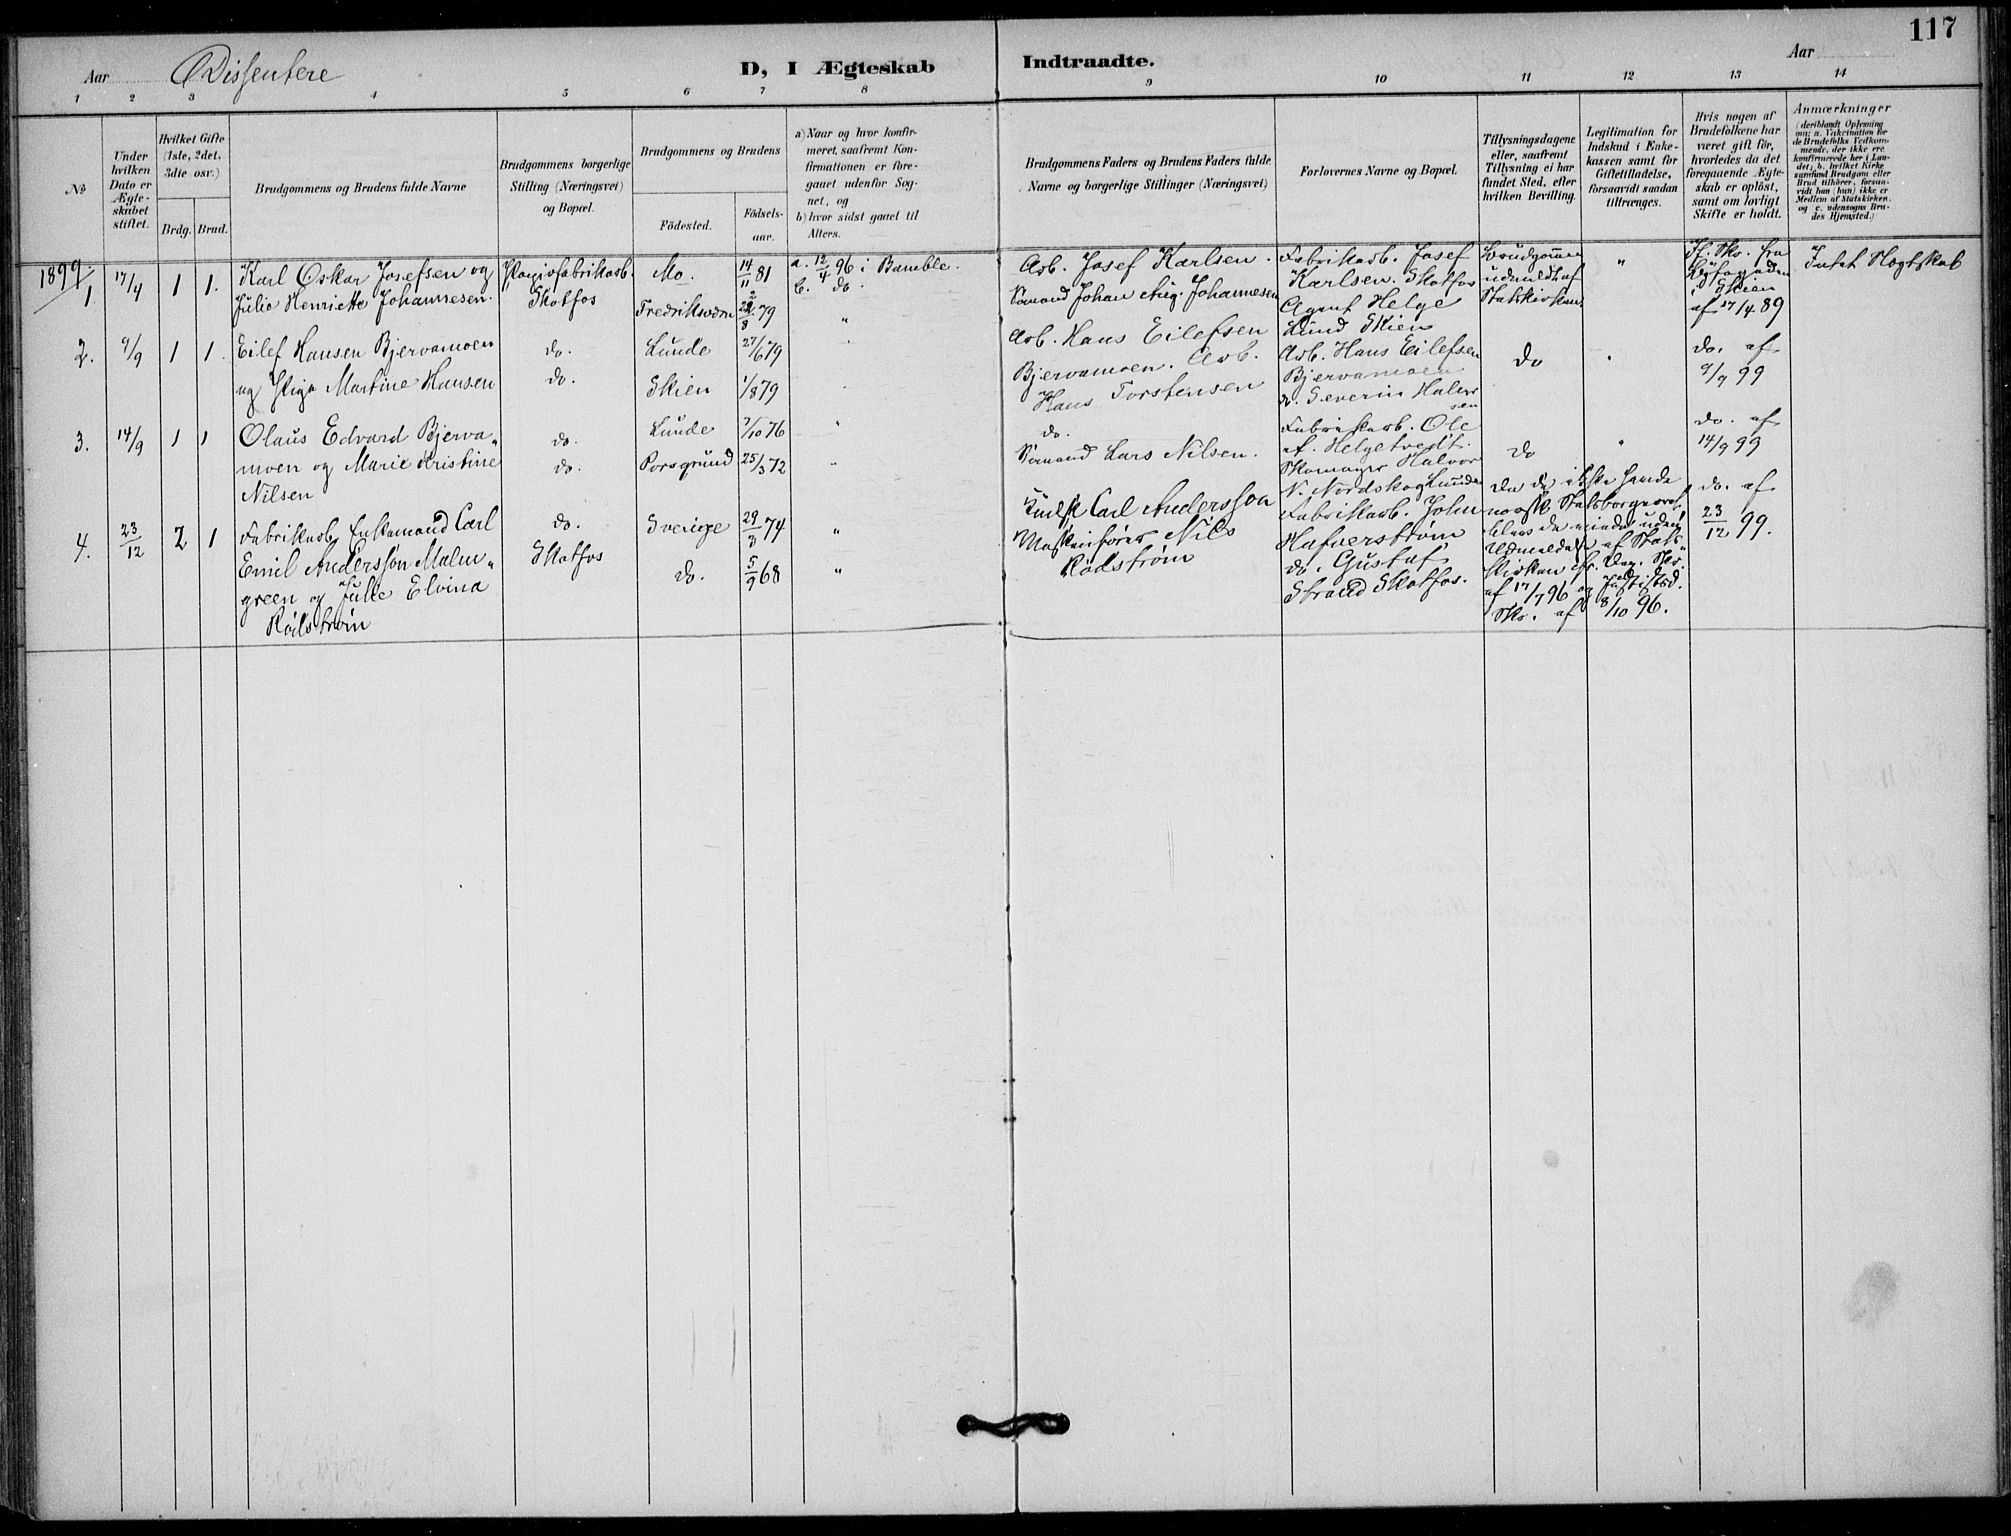 117
Aar Dissentere D, I Ægteskab Indtraadte. Aar
1 2 3 4 5 6 7 8 9 10 11 12 13 14
No
Under hvilken Dato er Ægteskabet stiftet.
Hvilket Gifte (1ste, 2det, 3die osv.)
Brdg. Brud.
Brudgommens og Brudens fulde Navne
Brudgommens borgerlige Stilling (Næringsvei) og Bopæl.
Brudgommens og Brudens
Födested.
Födselsaar.
a) Naar og hvor konfirmeret, saafremt Konfirmationen er foregaaet udenfor Sognet, og
b) hvor sidst gaaet til Alters.
Brudgommens Faders og Brudens Faders fulde Navne og borgerlige Stillinger (Næringsvei)
Forlovernes Navne og Bopæl.
Tillysningsdagene eller, saafremt Tillysning ei har fundet Sted, efter hvilken Bevilling.
Legitimation for Indskud i Enkekassen samt for Giftetilladelse, forsaavidt saadan tiltrænges.
Hvis nogen af Brudefolkene har været gift för, hvorledes da det foregaaende Ægteskab er oplöst, samt om lovligt Skifte er holdt.
Anmærkninger
(deriblandt Oplysning om: a. Vakcination for de Brudefolks Vedkommende, der ikke ere konfirmerede her i Landet; b. hvilket Kirkesamfund Brudgom eller Brud tilhörer, forsaavidt han (hun) ikke er Medlem af Statskirken, og c. udensogns Brudes Hjemsted.)
1899
1. 17/4 1 1. Karl Oskar Josefsen og
Julie Henriette Johannesen.
Skotfos
Mo. 14/11 81
Fredriksværn 22/8 79
a. 12/4 96 i Bamble.
b. do.
Arb. Josef Karlsen.
Sömand Johan Aug. Johannesen
Fabrikarb. Josef
Karlsen. Skotfos
Agent Helge
Lund Skien
Brudgommen
udmeldt af
Statskirken
"
Skien
af 17/4 89
Intet Slegtskab
2. 9/9 1 1. Eilef Hansen Bjervamoen
og Pige Martine Hansen
do.
do.
Lunde 27/6 79
Skien 1/8 79
Arb. Hans Eilefsen
Bjervamoen. Arb.
Hans Torstensen
Arb. Hans Eilefsen
Bjervamoen
do. Severin Halvorsen
do
do. af
9/9 99
3. 14/9 1 1 Olaus Edvard Bjerva-
moen og Marie Kristine
Nilsen
do.
do.
Lunde 7/10 76
Porsgrund 25/3 72
"
"
do.
Sömand Lars Nilsen.
Fabrikarb. Ole
Helgetvedt.
Skomager Halvor
N. Nordskog Lunde
do
"
do. af
14/9 99
4. 23/12 2 1 Fabrikarb. Enkemand Carl
Emil Andersson Malm-
green og Julie Elvina
Rödström
do.
Skotfos
Sverige 29/3 74
do. 5/9 68
"
"
Carl Andersson
Nils
Rödström
Fabrikarb. John
Hafnerström
do. Gustaf
Strand Skotfos.
Da de ikke havde
norsk Statsborgerret
uden
Udmeldelse af Stats-
kirken cfr. Dep. Skr.
af 17/7 96 og
Skr. af 8/10 96.
do. af
23/12 99.